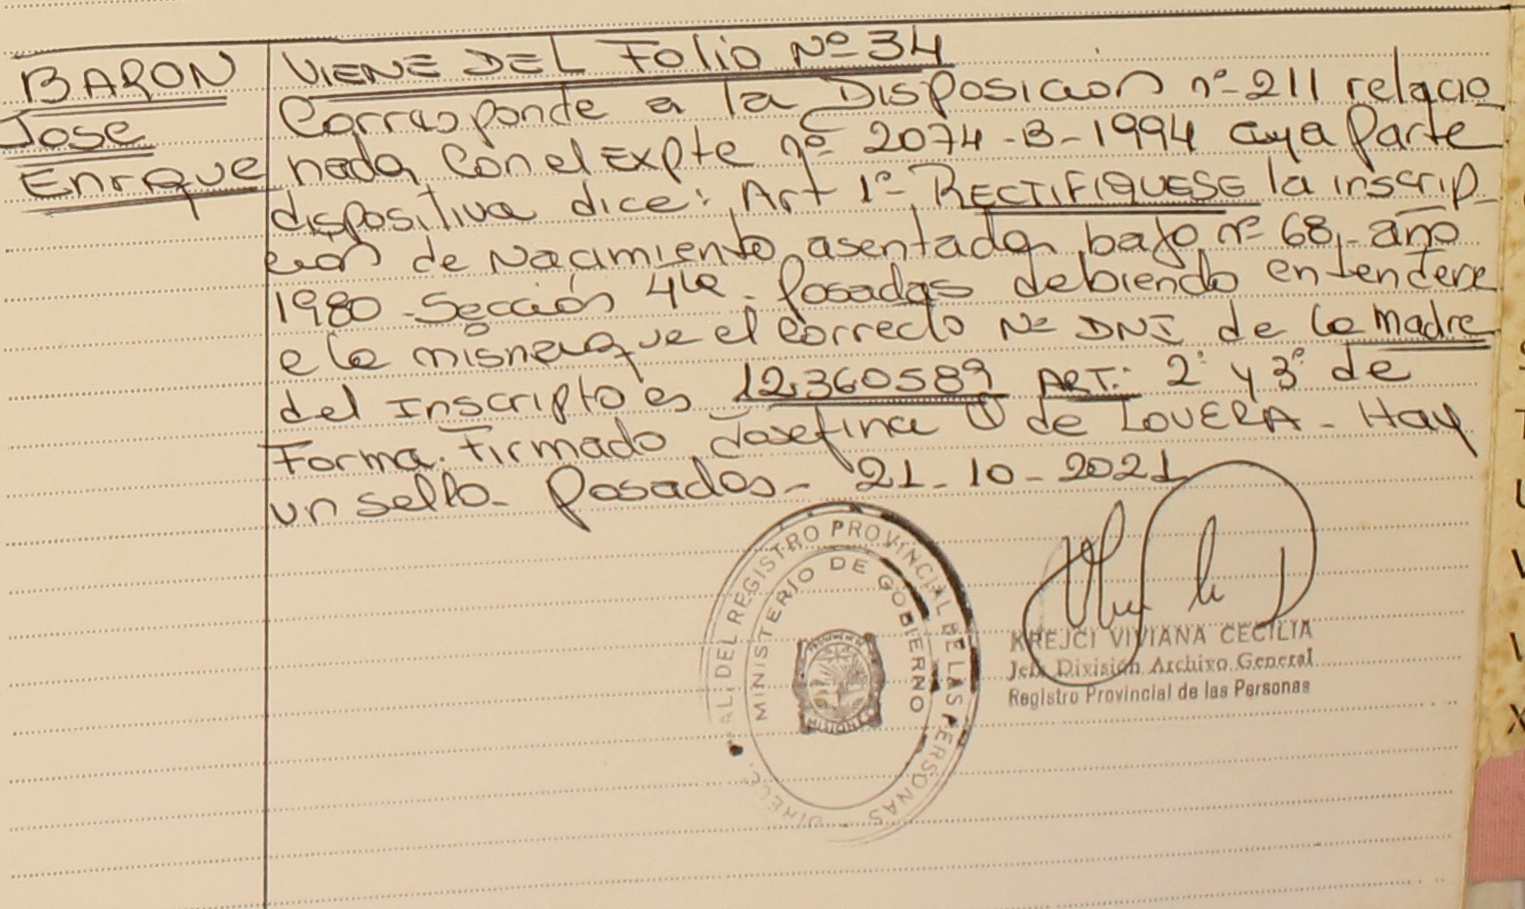 BARON
Jose
Enrique
VIENE DEL Folio Nº 34
Corresponde a la Disposición nº 211 relacio
nada, con el Expte nº 2074-B-1994 cuya Parte
dispositiva dice: Art 1º- RECTIFIQUESE la inscrip-
ción de Nacimiento asentada bajo nº 68,- año
1980 - Sección 4ta - Posadas debiendo entenderse
e la misma que el correcto Nº DNI de la madre
del Inscripto es 12.360589 ART: 2º y 3º de
Forma. Firmado Josefina de LOVERA - Hay
un sello - Posadas - 21-10-2021
DIRECC. GRAL. DEL REGISTRO PROVINCIAL DE LAS PERSONAS
MINISTERIO DE GOBIERNO
PROVINCIA DE
MISIONES
KREJCI VIVIANA CECILIA
Jefa División Archivo General
Registro Provincial de las Personas